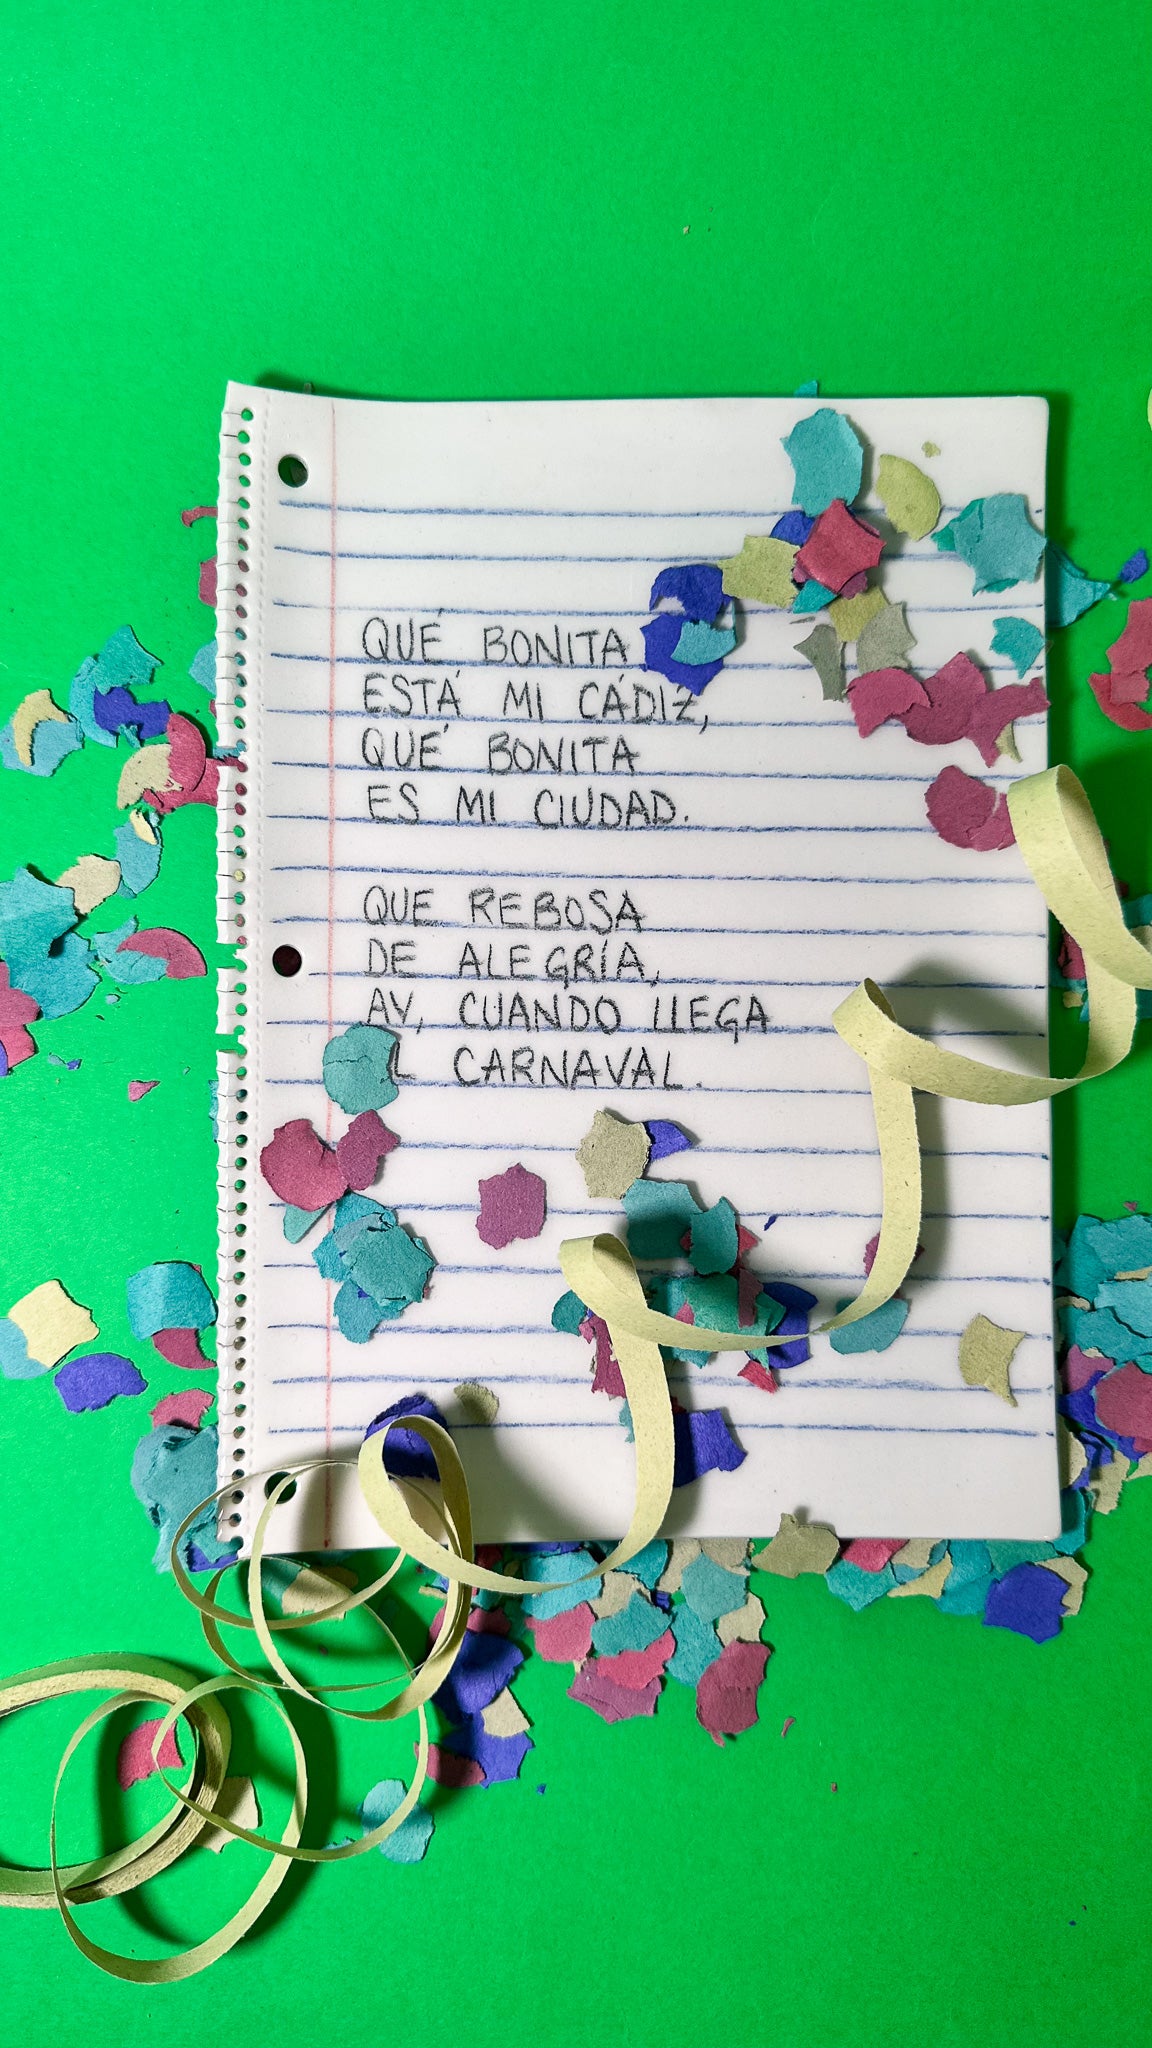 QUÉ BONITA
ESTÁ MI CÁDIZ,
QUÉ BONITA
ES MI CIUDAD.
QUE REBOSA
DE ALEGRÍA,
AY, CUANDO LLEGA
L CARNAVAL.